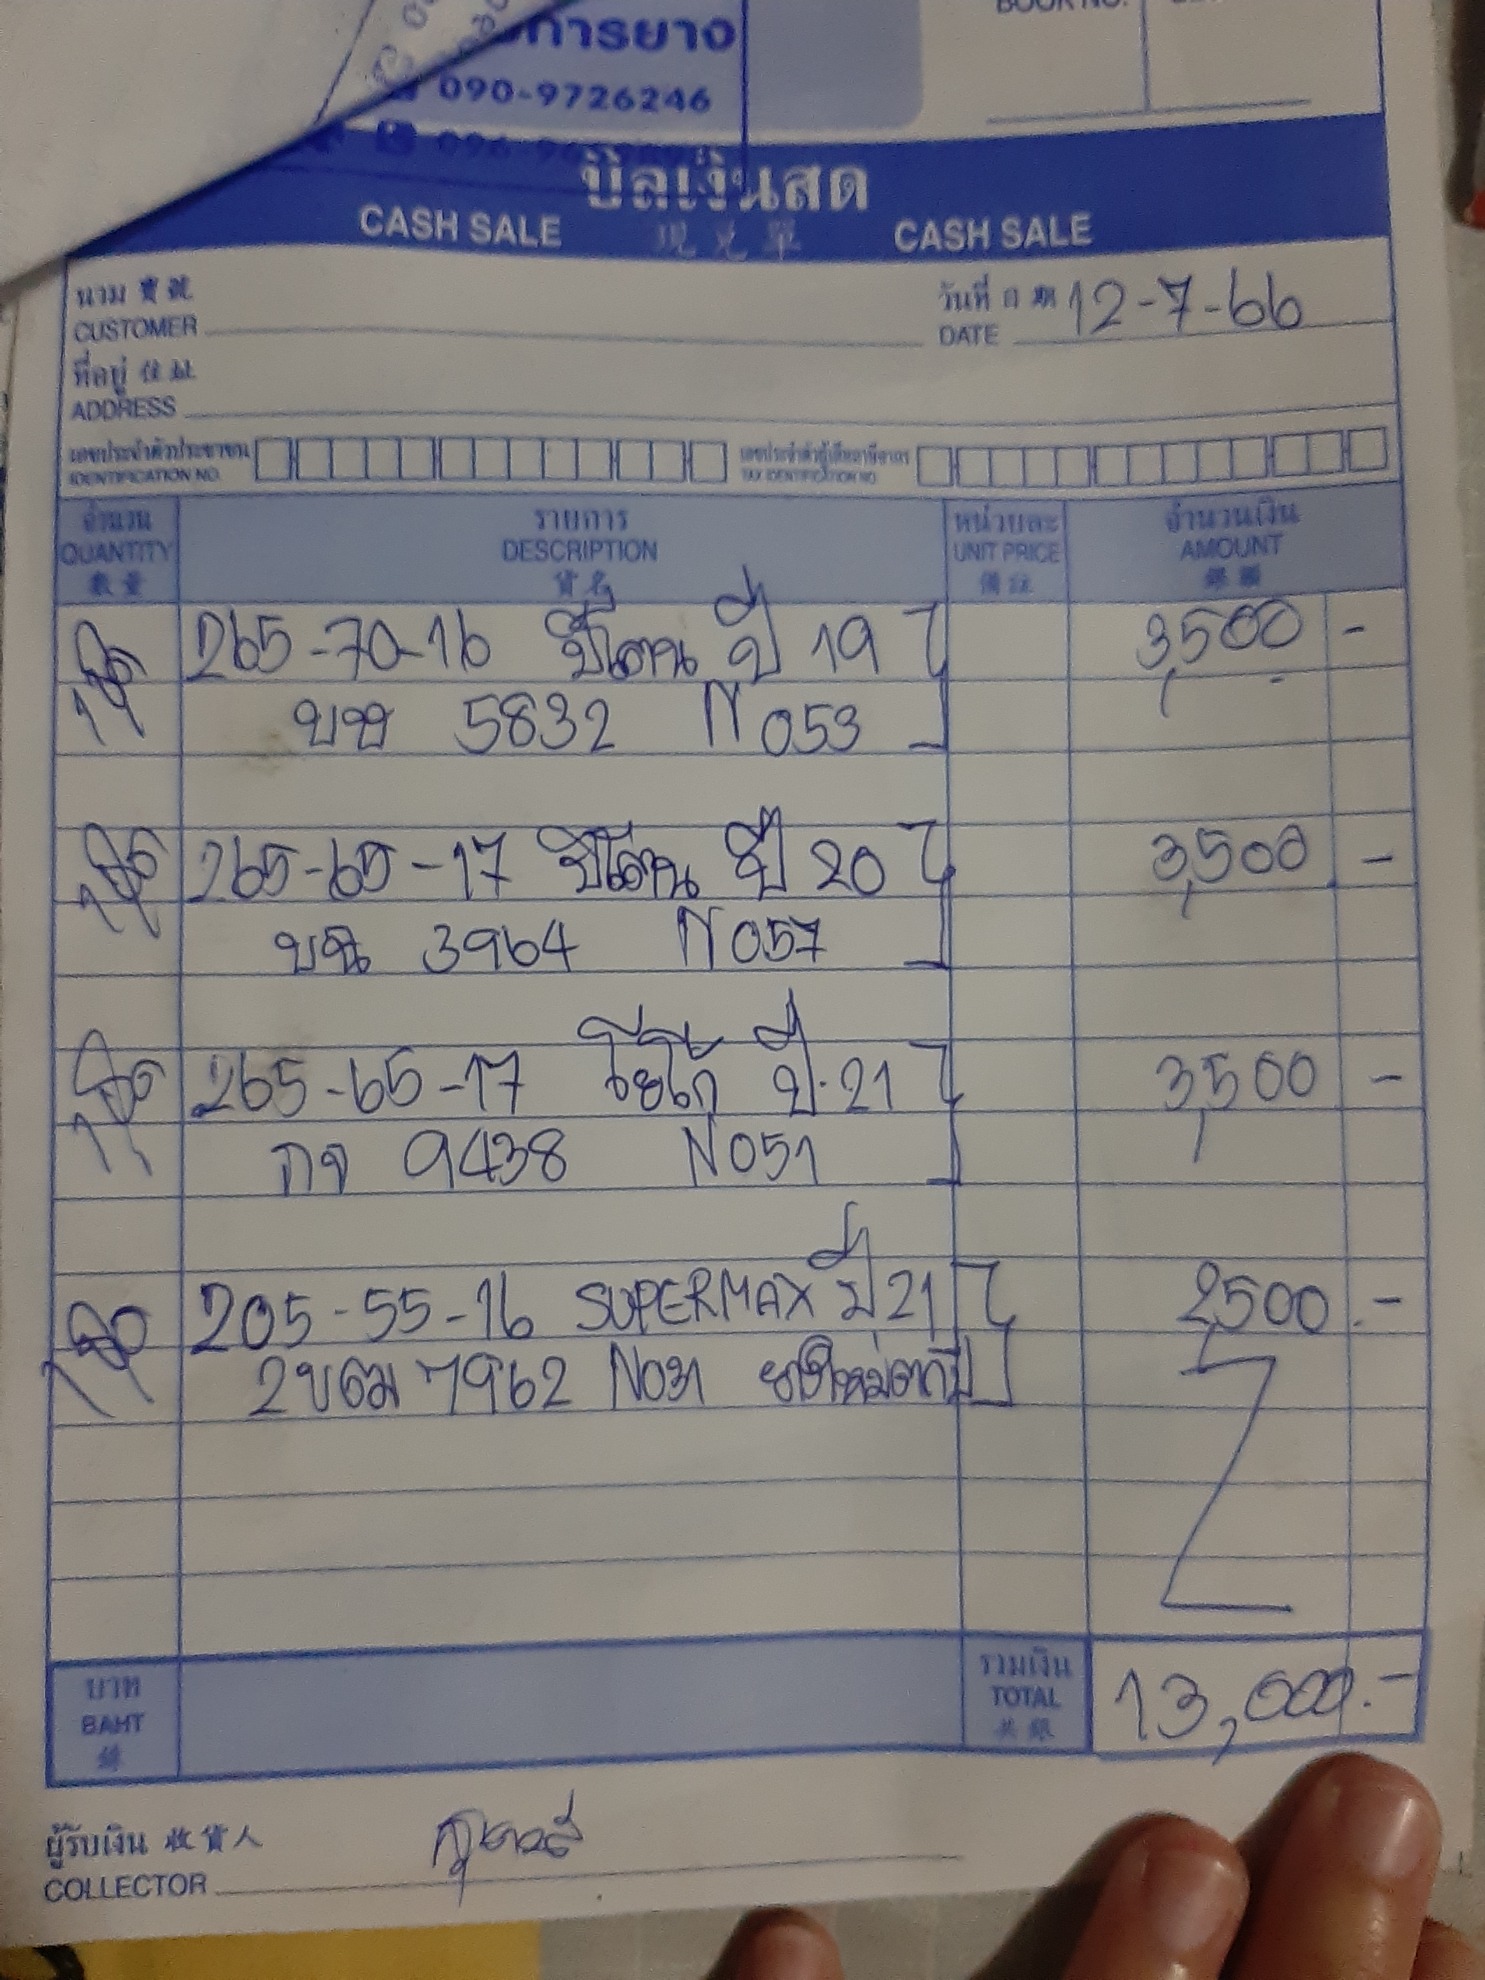 การยาง
090-9726246
บิลเงินสด
CASH SALE 現兌單 CASH SALE
นาม 寶號
CUSTOMER
วันที่ 日期 12-7-66
DATE
ที่อยู่ 住址
ADDRESS
เลขประจำตัวประชาชน
IDENTIFICATION NO.
เลขประจำตัวผู้เสียภาษีอากร
TAX IDENTIFICATION NO.
จำนวน รายการ หน่วยละ จำนวนเงิน
QUANTITY DESCRIPTION UNIT PRICE AMOUNT
數量 貨名 備註 銀額
265-70-16 ปี 19 3,500 -
บขช 5832 N053
265-65-17 ปี 20 3,500 -
3964 N057
265-65-17 ปี 21 3,500 -
กจ 9438 N051
205-55-16 SUPERMAX ปี 21 2,500 .-
7962 N031
บาท รวมเงิน
BAHT TOTAL 13,000.-
銖 共銀
ผู้รับเงิน 收貨人
COLLECTOR